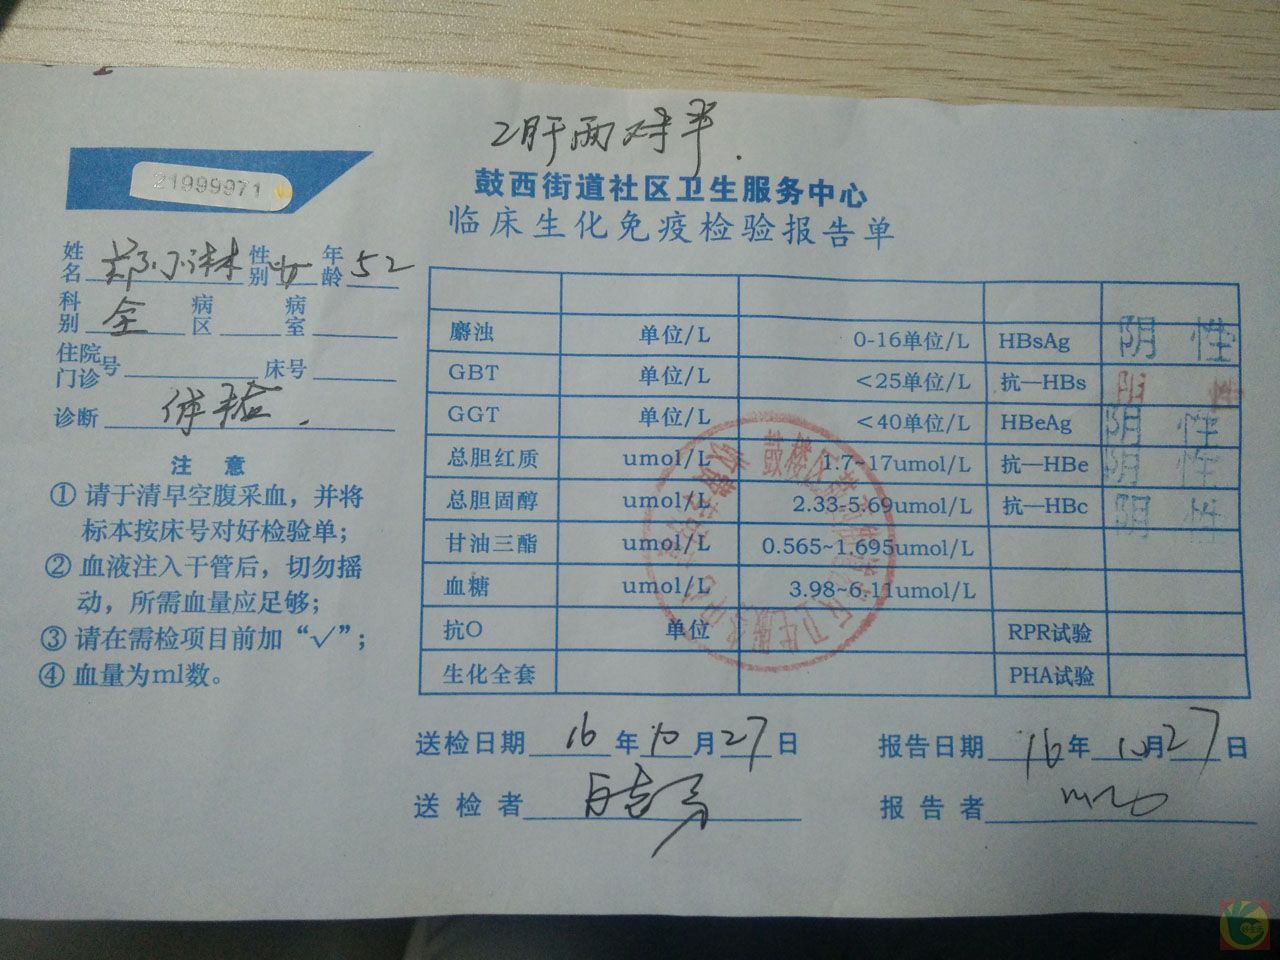 乙肝两对半.
鼓西街道社区卫生服务中心
临床生化免疫检验报告单
21999971
姓名 性别 女 年龄 52
科别 全 病区 病室
住院门诊号 床号
诊断 体检.
注 意
① 请于清早空腹采血，并将
标本按床号对好检验单；
② 血液注入干管后，切勿摇
动，所需血量应足够；
③ 请在需检项目前加“√”；
④ 血量为ml数。
麝浊 单位/L 0-16单位/L HBsAg 阴 性
GBT 单位/L <25单位/L 抗—HBs 阳 性
GGT 单位/L <40单位/L HBeAg 阴 性
总胆红质 umol/L 1.7~17umol/L 抗—HBe 阴 性
总胆固醇 umol/L 2.33-5.69umol/L 抗—HBc 阴 性
甘油三酯 umol/L 0.565~1.695umol/L
血糖 umol/L 3.98~6.11umol/L
抗O 单位 RPR试验
生化全套 PHA试验
送检日期 16 年 10 月 27 日 报告日期 16 年 10 月 27 日
送检者 报告者